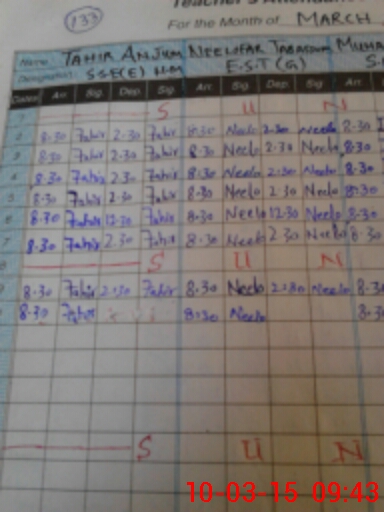 Teacher's Attendance
133 For the Month of MARCH
Name: TAHIR ANJUM NEELOFAR TABASSUM
Designation: SSE(E) H.M E.S.T (G) S.
Dates Arr. Sig. Dep. Sig. Arr. Sig. Dep. Sig. Arr.
1 S U N
2 8.30 Tahir 2.30 Tahir 8.30 Neelo 2.30 Neelo 8.30
3 8.30 Tahir 2.30 Tahir 8.30 Neelo 2.30 Neelo 8.30
4 8.30 Tahir 2.30 Tahir 8.30 Neelo 2.30 Neelo 8.30
5 8.30 Tahir 2.30 Tahir 8.30 Neelo 2.30 Neelo 8.30
6 8.30 Tahir 12.30 Tahir 8.30 Neelo 12.30 Neelo 8.30
7 8.30 Tahir 2.30 Tahir 8.30 Neelo 2.30 Neelo 8.30
8 S U N
9 8.30 Tahir 2.30 Tahir 8.30 Neelo 2.30 Neelo 8.3
8.30 Tahir 8.30 Neelo 8.3
S U N
10-03-15 09:43